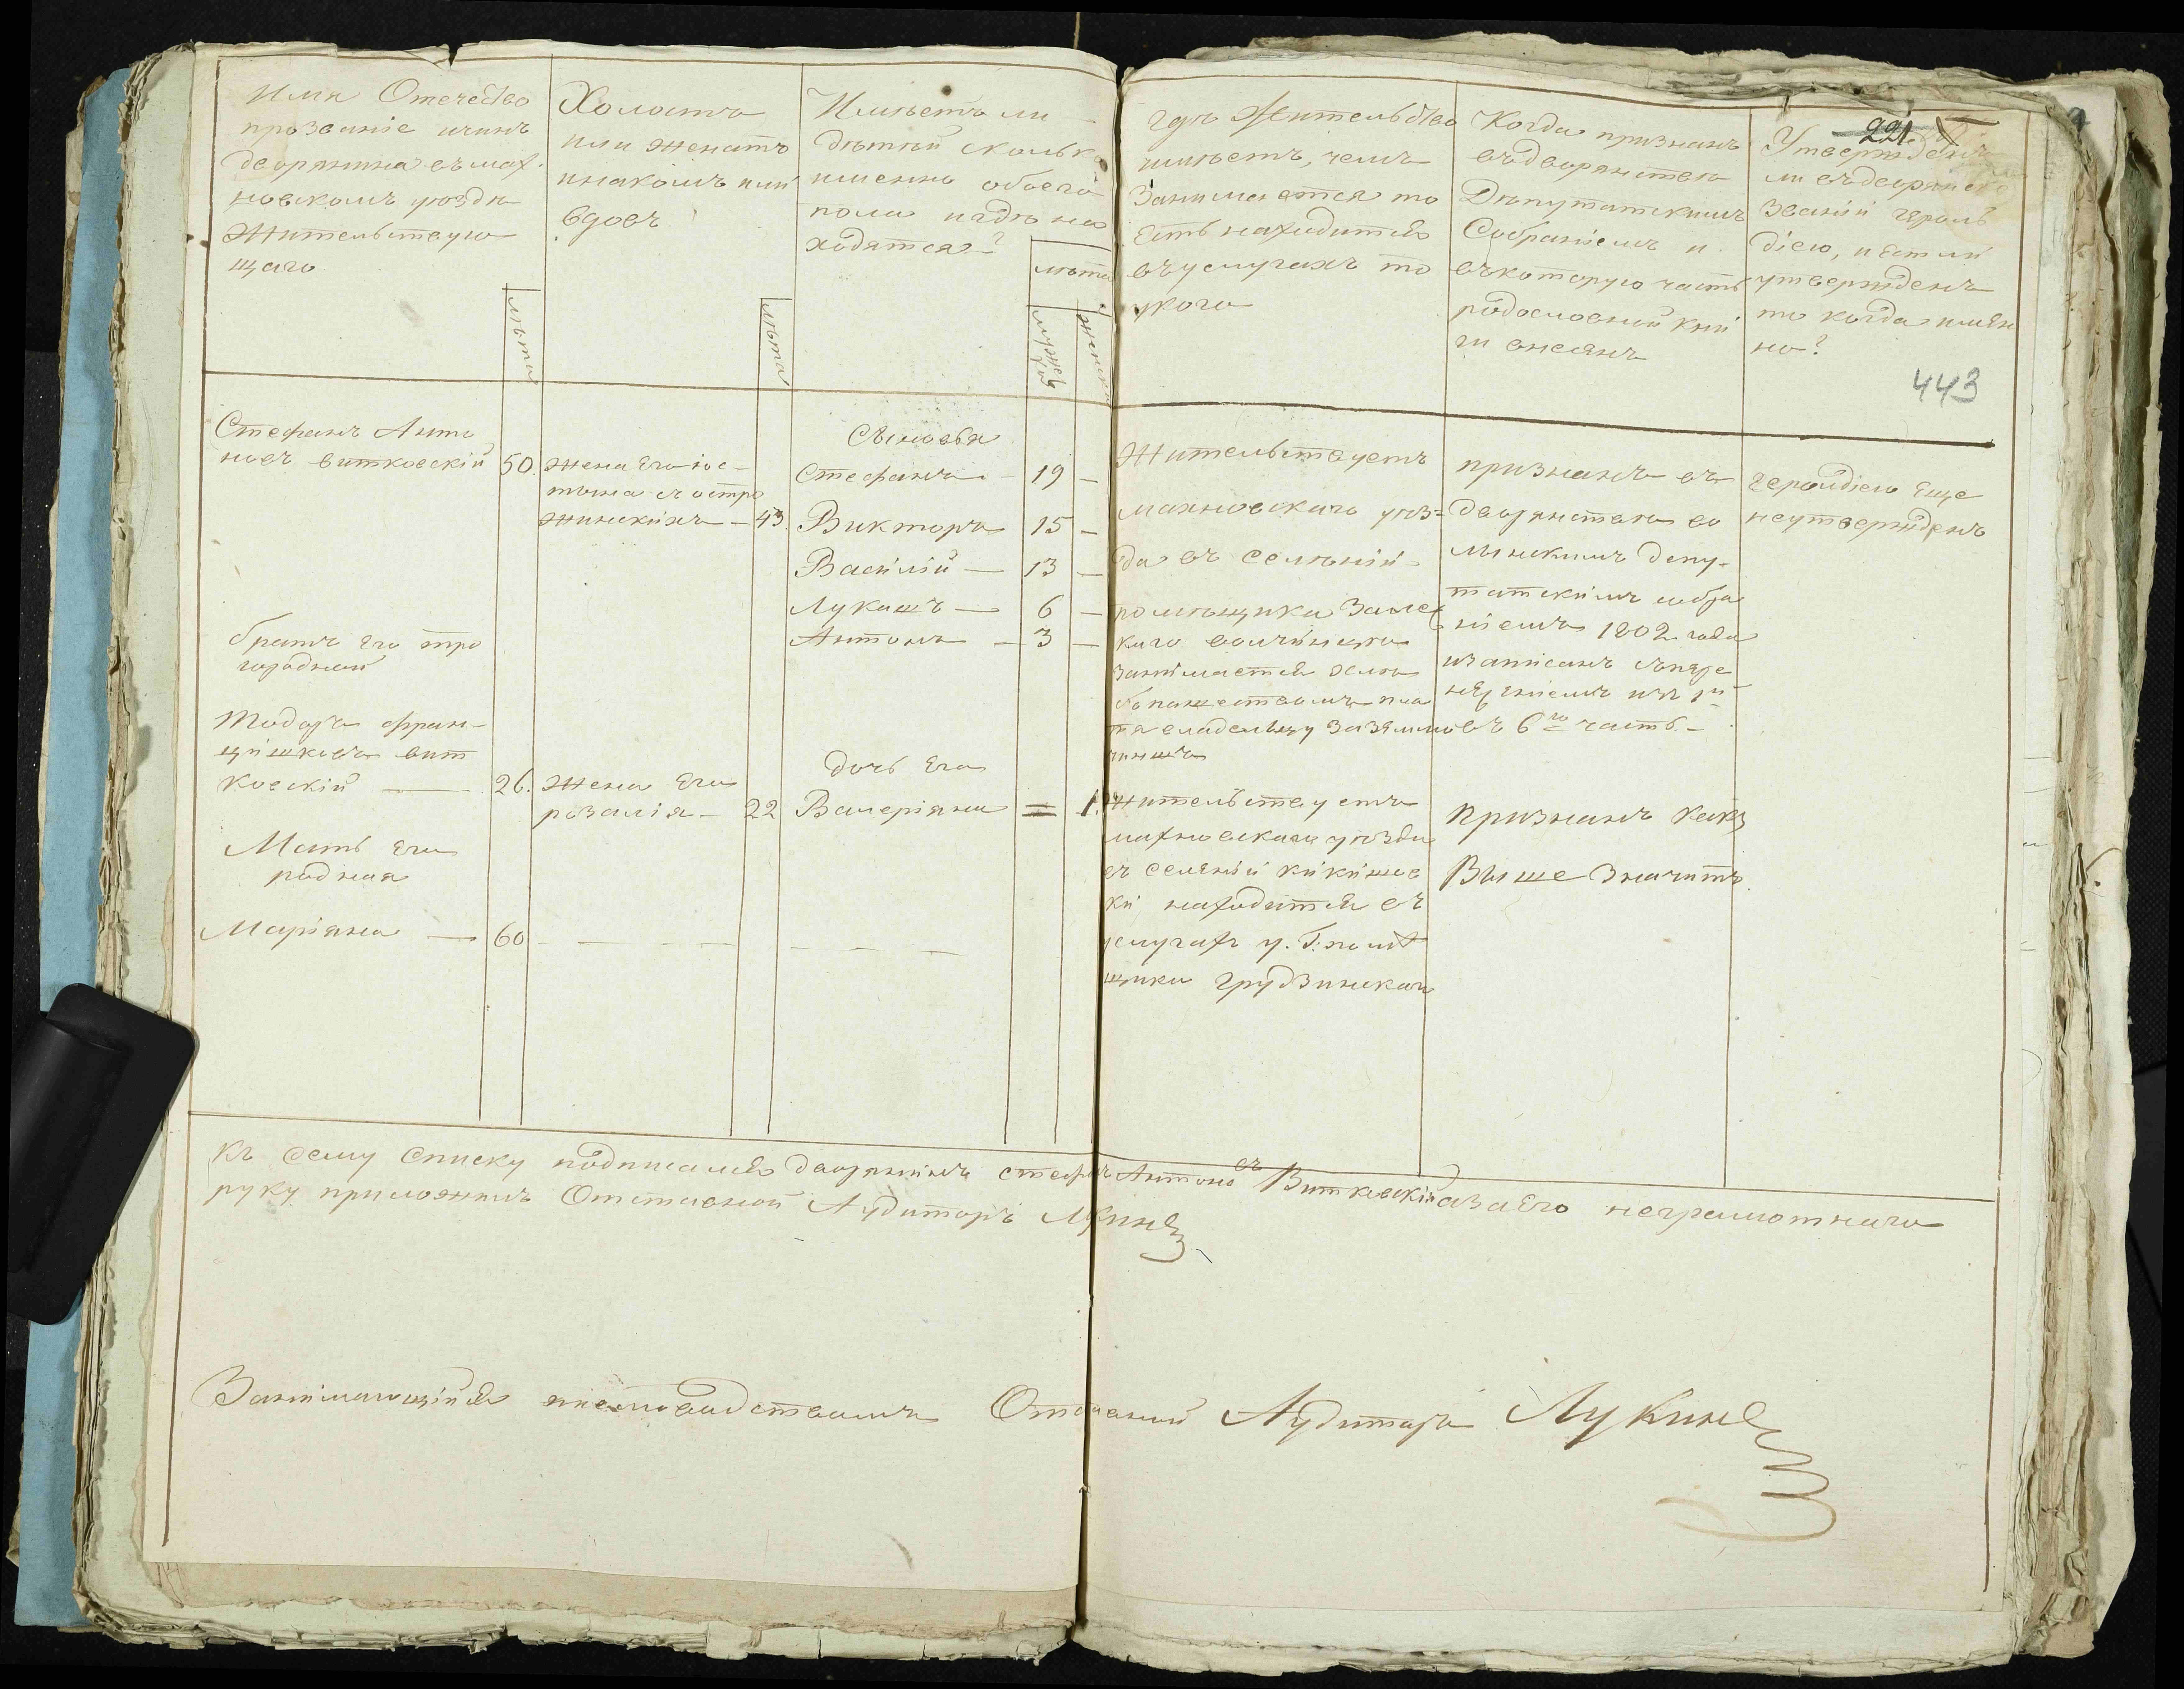 Имя Отечество
прозваніе ичинъ
дворянина въмах-
новскомъ уюздѣ
Жительствую
щаго
лѣта
Холостъ
или женатъ
инакомъ или
вдовъ
лѣта
Имѣетъ ли
дѣтей сколько
именно обоего
пола игдѣ на
ходятся?
лѣта
мужеск
женск
гдѣ Жительство
имѣетъ, чемъ
Занимается то
Есть находится
въуслугахъ то
укого
Когда признанъ
въдворянствѣ
Депутатскимъ
Собраніемъ и
въкоторую часть
родословной кни
ги внесенъ
221
Утвержденъ
ли въдворянско
званіи герольд
діею, иестли
утвержденъ
то когда имян
но?
443
Стефанъ Анто
новъ витковскій 50.
жена Его юс-
тына съ остро
жинскихъ — 43.
Сыновья
Стефанъ — 19 —
Викторъ 15 —
Василій — 13 —
Лукашъ — 6 —
Антонъ — 3 —
Жительствуетъ
махновскаго уюз=
да въ селѣніи
помѣщика Залес
каго
занимается хлѣ
бопашествомъ пла
тя владельцу заземлю
чиншъ
признанъ въ
дворянствѣ во
лынскимъ депу-
татскимъ собра
ніемъ 1802 года
изаписанъ съпере
несеніемъ изъ 1й
въ 6ю часть —
герольдіею Еще
неутвержденъ
братъ Его тро
юродный
Тодоръ фран-
цишковъ вит
ковскій — 26.
жена Его
розалія — 22
дочь Его
Валеріяна = 1.
Жительствуетъ
махновскаго уюзда
въ селеніи кикишов
ки находится въ
услугахъ у. Г: помѣ
щика грудзинскаго
признанъ какъ
Выше Значитъ
Мать Его
родная
Маріяна — 60
Къ Сему Списку подписался дворянинъ стефанъ Антоновъ Витковскій азаЕго неграмотнаго
руку приложилъ Отставной Аудиторъ Лукинъ
Занимающійся Отставной Аудиторъ Лукинъ